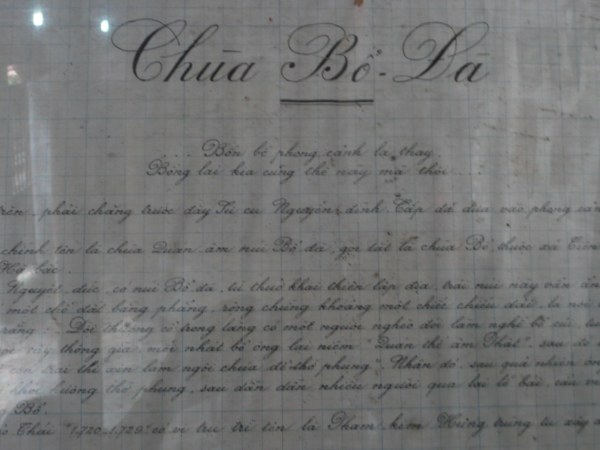 Chùa Bổ-Đà
.... Bốn bề phong cảnh lạ thay
Bồng lai kia cũng thế này mà thôi ...!
trên, phải chăng trước đây Tú cụ Nguyễn đình Cấp đã đưa vào phong cản
chính tên là chùa Quán âm núi Bổ đà, gọi tắt là chùa Bổ, thuộc xã Tiên
Hà bắc.
Nguyệt đức, có núi Bổ đà, từ thuở khai thiên lập địa, trái núi này vẫn
một chỗ đất bằng phẳng, rộng chừng khoảng một chiếc chiếu, là nơi
rằng: Đời thường có trong làng có một người nghèo đói làm nghề
cây thông già mới nhất bẻ ông lưu niệm "Quan thế âm Phật", sau
xin làm ngôi chùa để thờ phụng. Nhân đó, sau quá nhiều
khói hương thờ phụng, sau dần dần nhiều người qua lại lễ bái, cầu
Bổ.
Thái "1.720-1.729" có vị trụ trì tên là Phạm kim Hưng trùng tu xây